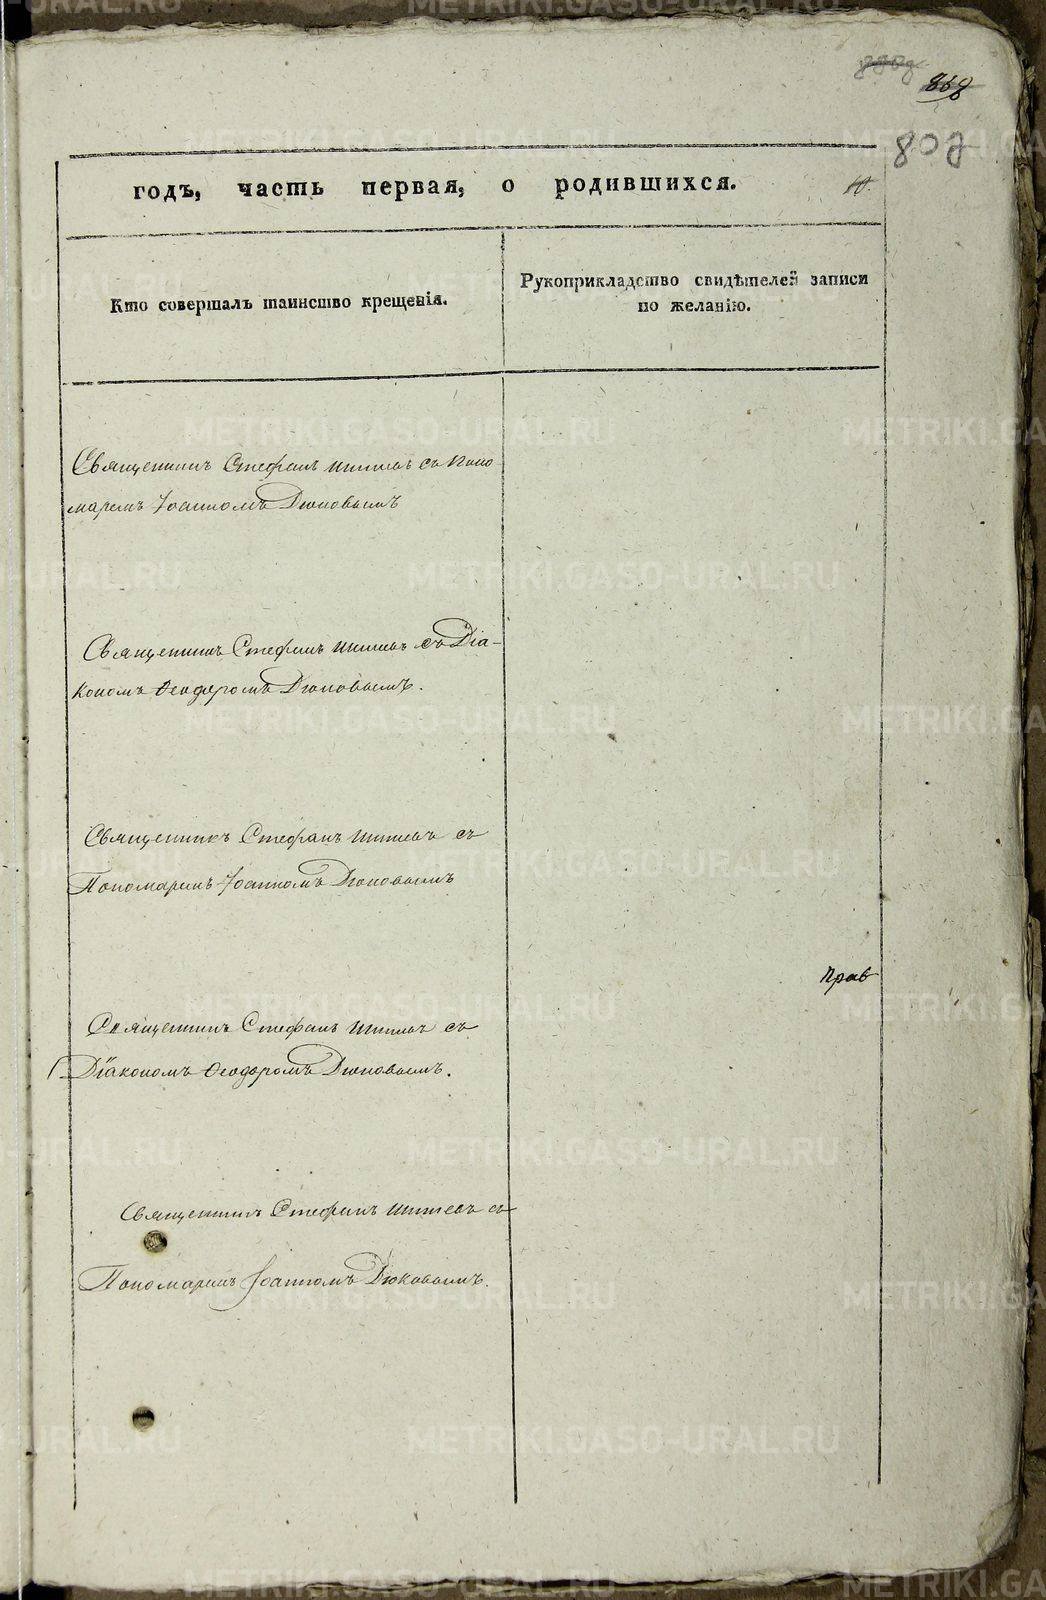 868
808
годъ, часть первая, о родившихся.
10.
Кто совершалъ таинство крещенія.
Рукоприкладство свидѣтелей записи
по желанію.
Священникъ Стефанъ съ Поно-
маремъ Іоанномъ Дюковымъ
Священникъ Стефанъ съ Діа-
кономъ Ѳеодоромъ Дюковымъ.
Священникъ Стефанъ съ
Пономаремъ Іоанномъ Дюковымъ
прав
Священникъ Стефанъ съ
Діакономъ Ѳеодоромъ Дюковымъ.
Священникъ Стефанъ съ
Пономаремъ Іоанномъ Дюковымъ.
METRIKI.GASO-URAL.RU